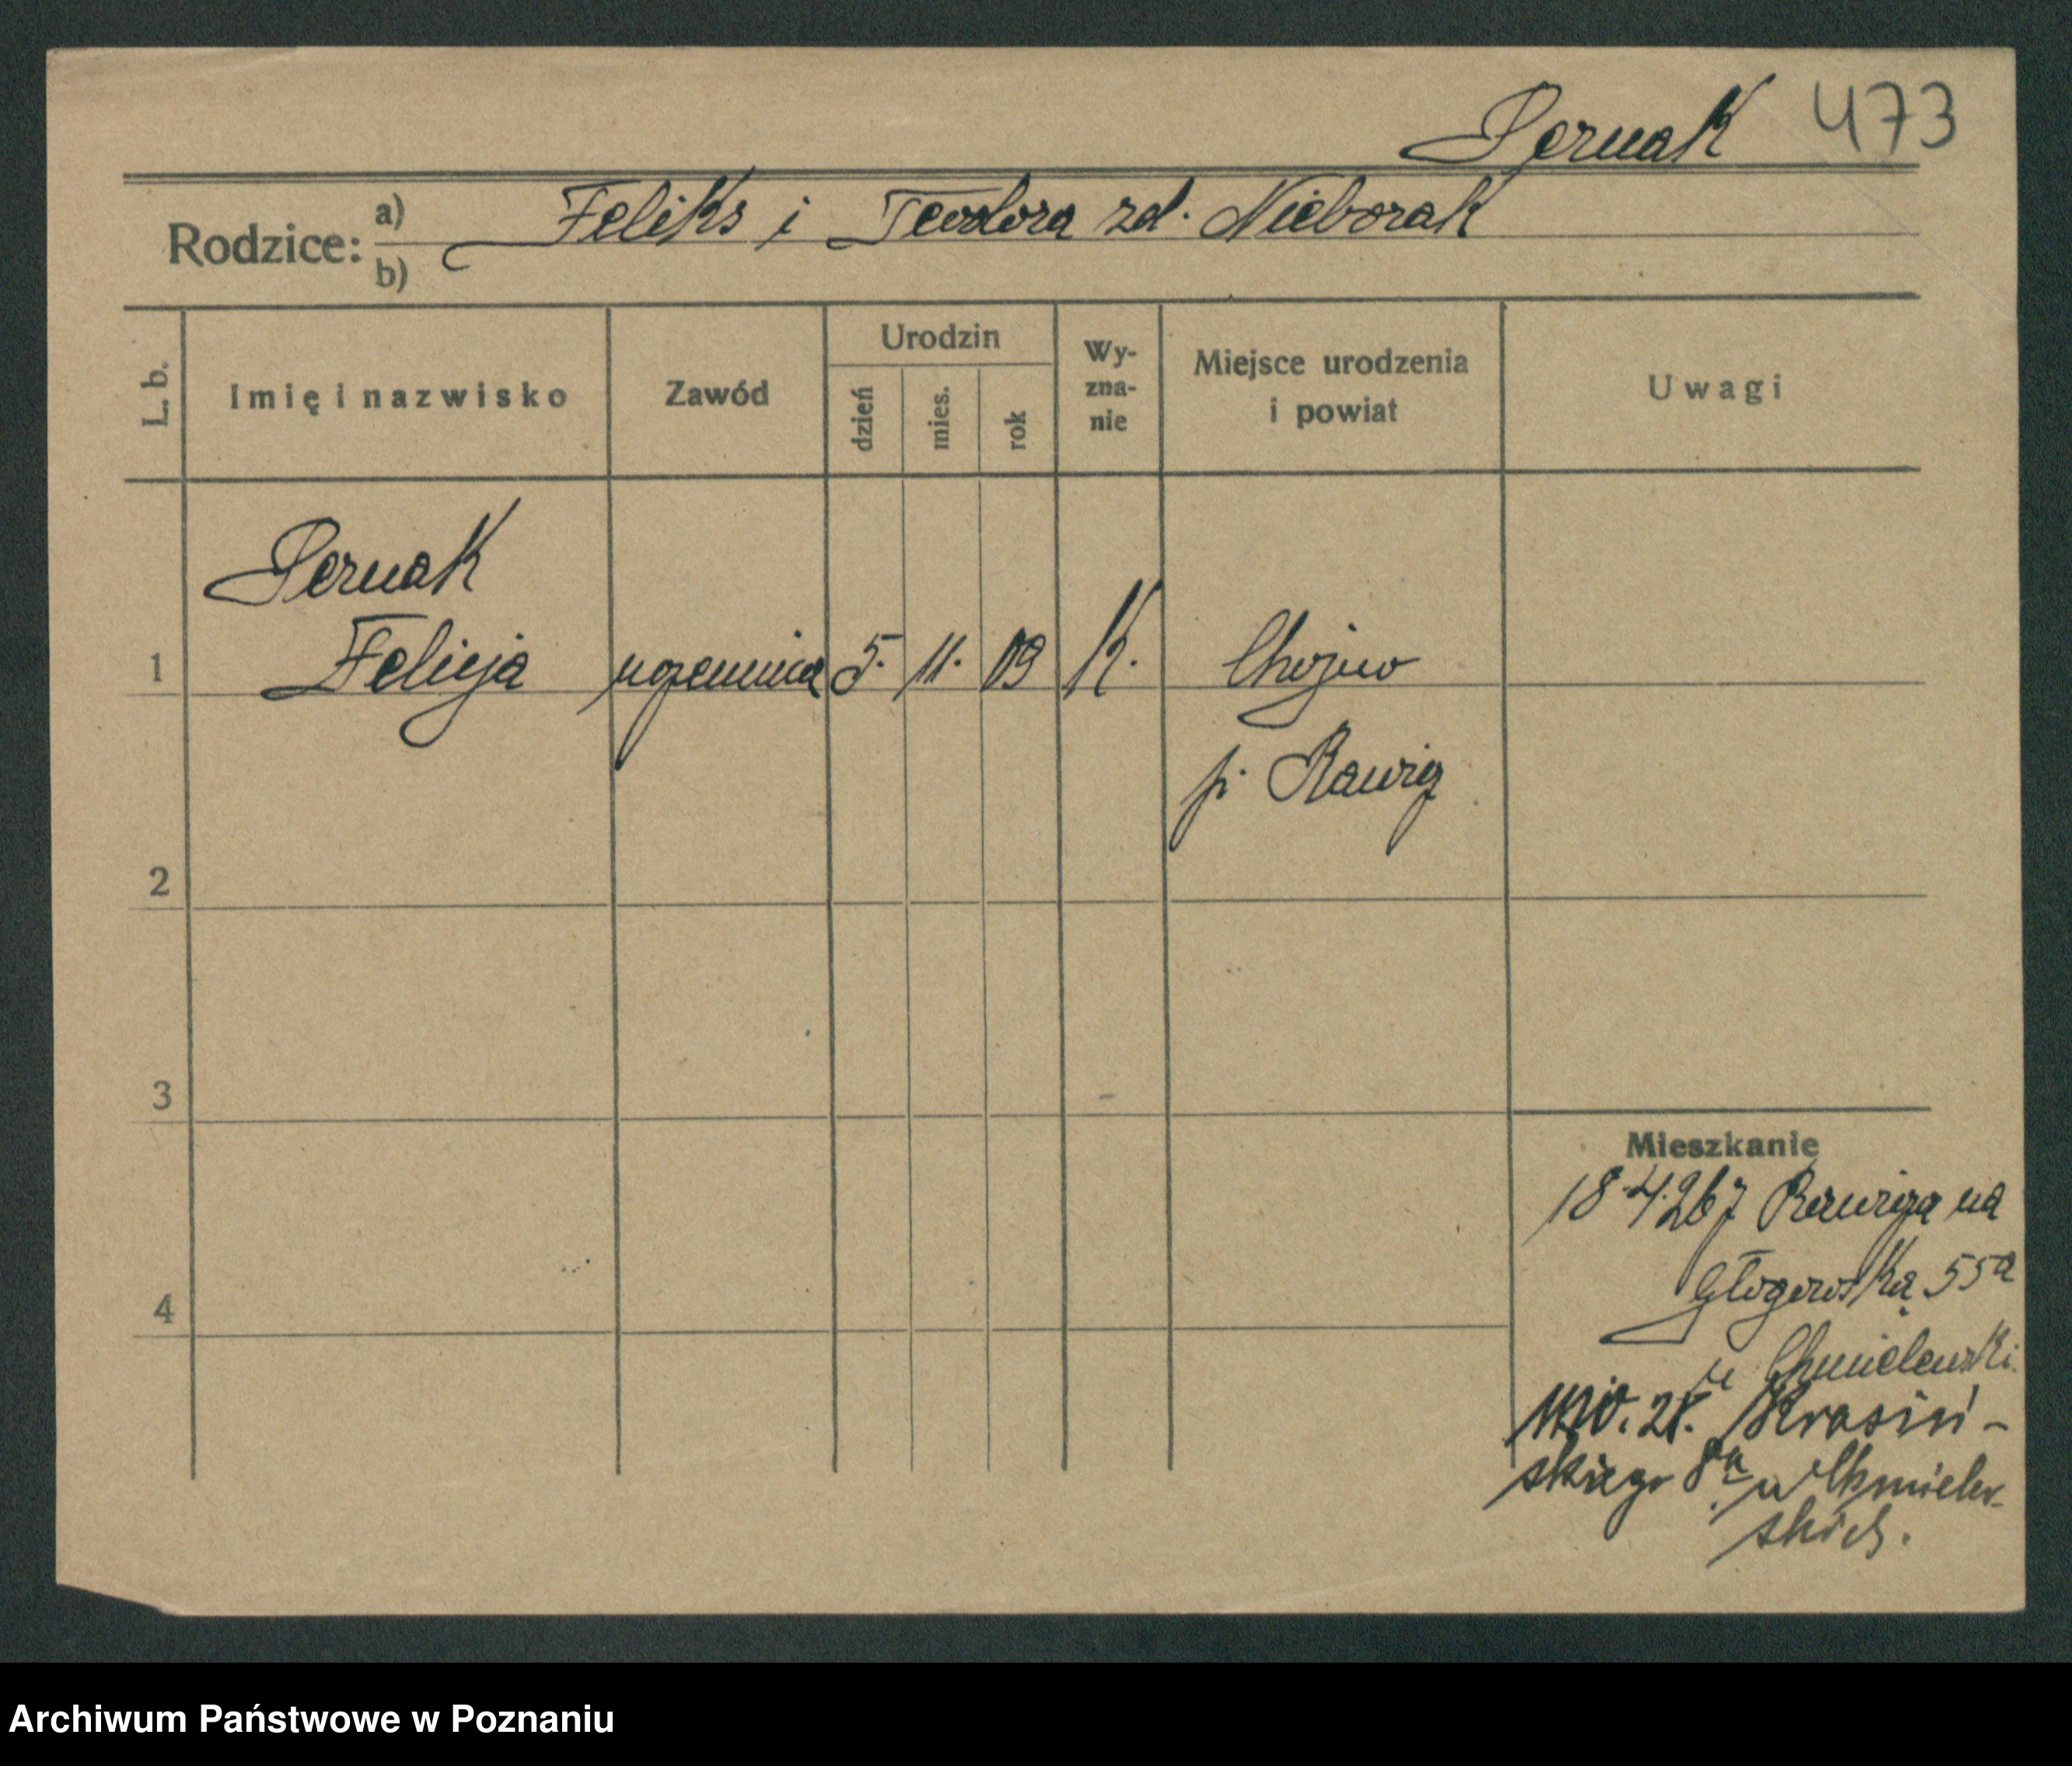 Pernak 473
Rodzice: a) Feliks i Teodora zd. Nieborak
b)
L. b. Imię i nazwisko Zawód Urodzin dzień mies. rok Wy-zna-nie Miejsce urodzenia i powiat Uwagi
Pernak
1 Felicja uczennica 5. 11. 09 K. Chojno
p. Rawicz
2
3
Mieszkanie
18.4.26 z Rawicza na
4 Głogowską 55a
u Chmielewski.
28. Krasiń-
skiego 8a u Chmielew-
skich.
Archiwum Państwowe w Poznaniu